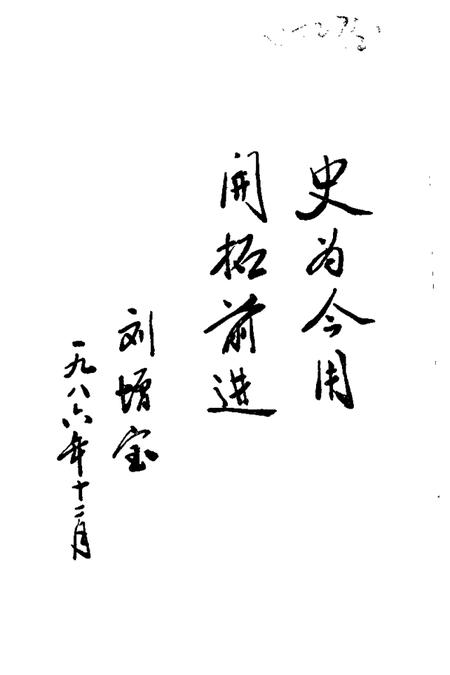 史为今用
開拓前进
刘增宝
一九八六年十二月